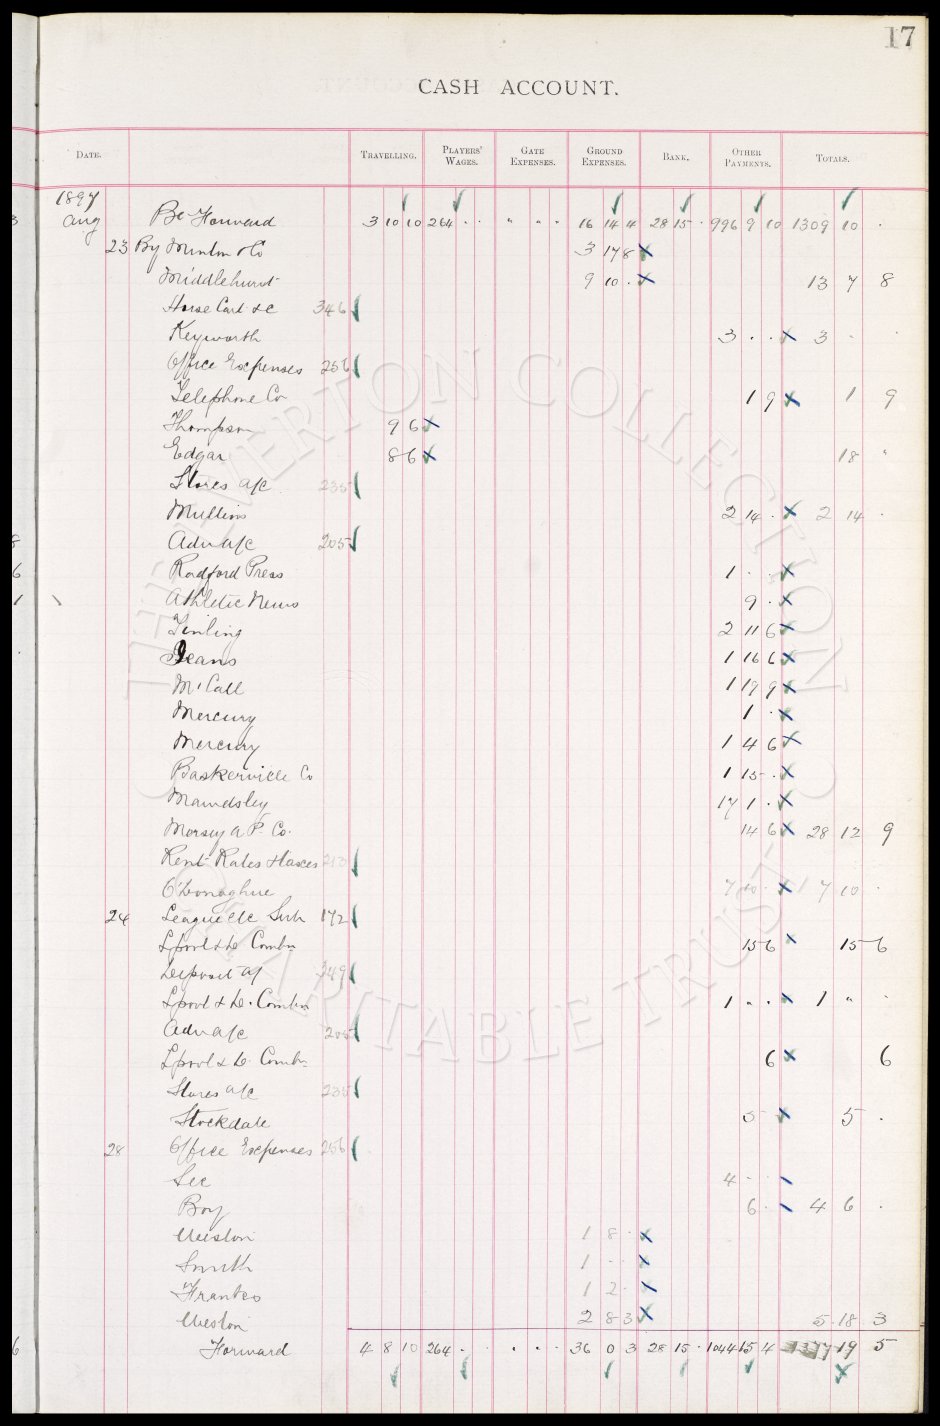 17
CASH ACCOUNT.
DATE. TRAVELLING. PLAYERS' WAGES. GATE EXPENSES. GROUND EXPENSES. BANK. OTHER PAYMENTS. TOTALS.
1897
Aug Bt Forward 3 10 10 264 . . " " " 16 14 4 28 15 . 996 9 10 1309 10 .
23 By Minton & Co 3 17 8
Middlehurst 9 10 . 13 7 8
Horse Cart &c 346
Keyworth 3 . . 3 . .
Office Expenses 256
Telephone Co 1 9 1 9
Thompson 9 6
Edgar 8 6 18 "
Stores a/c 235
Mullins 2 14 . 2 14 .
Adv a/c 205
Radford Press 1 . .
Athletic News 9 .
Tinling 2 11 6
Deans 1 16 6
McCall 1 19 9
Mercury 1 .
Mercury 1 4 6
Baskerville Co 1 15 .
17 1 .
Mersey a P. Co. 14 6 28 12 9
Rent Rates & taxes 213
O'Donaghue 7 10 . 7 10 .
24 League &c Sub 172
Lpool & D Combn 15 6 15 6
Deposit a/ 349
Lpool & D. Combn 1 " . 1 " .
Adv a/c 205
Lpool & D. Combn 6 6
Stores a/c 235
Stockdale 5 . 5 .
28 Office Expenses 256
Sec 4 . .
Boy 6 . 4 6 .
Weston 1 8 .
Smith 1 . .
1 2 .
Weston 2 8 3 5 18 3
Forward 4 8 10 264 . . . . . 36 0 3 28 15 . 1044 15 4 1377 19 5
THE EVERTON COLLECTION CHARITABLE TRUST